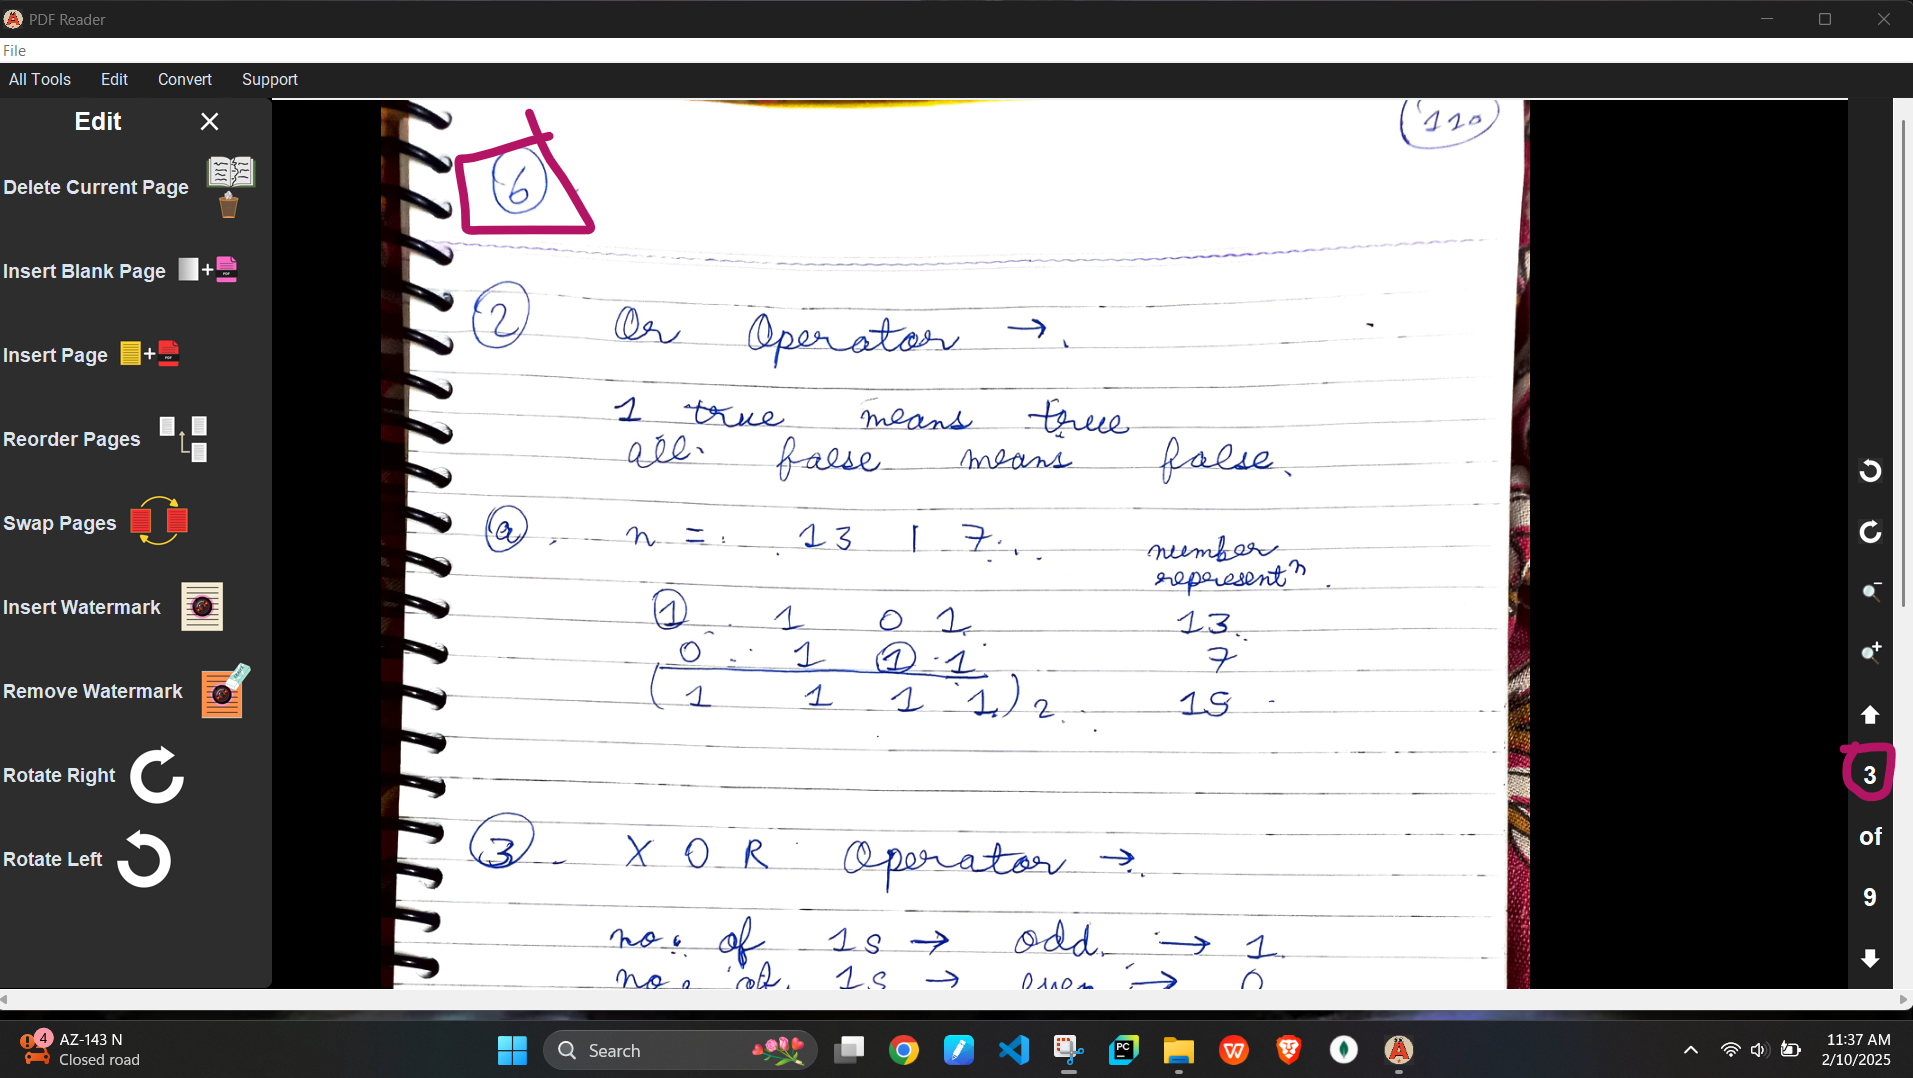 PDF Reader
File
All Tools Edit Convert Support
Edit
Delete Current Page
Insert Blank Page
Insert Page
Reorder Pages
Swap Pages
Insert Watermark
Remove Watermark
Rotate Right
Rotate Left
110
6
2 Or Operator →
1 true means true
all false means false.
a. n = 13 | 7
number
representⁿ.
1 1 0 1 13
0 1 1 1 7
(1 1 1 1)₂ 15
3 - XOR Operator →
no. of 1s → odd. → 1
no. of 1s → even → 0
3
of
9
4
AZ-143 N
Closed road
Search
PC
11:37 AM
2/10/2025